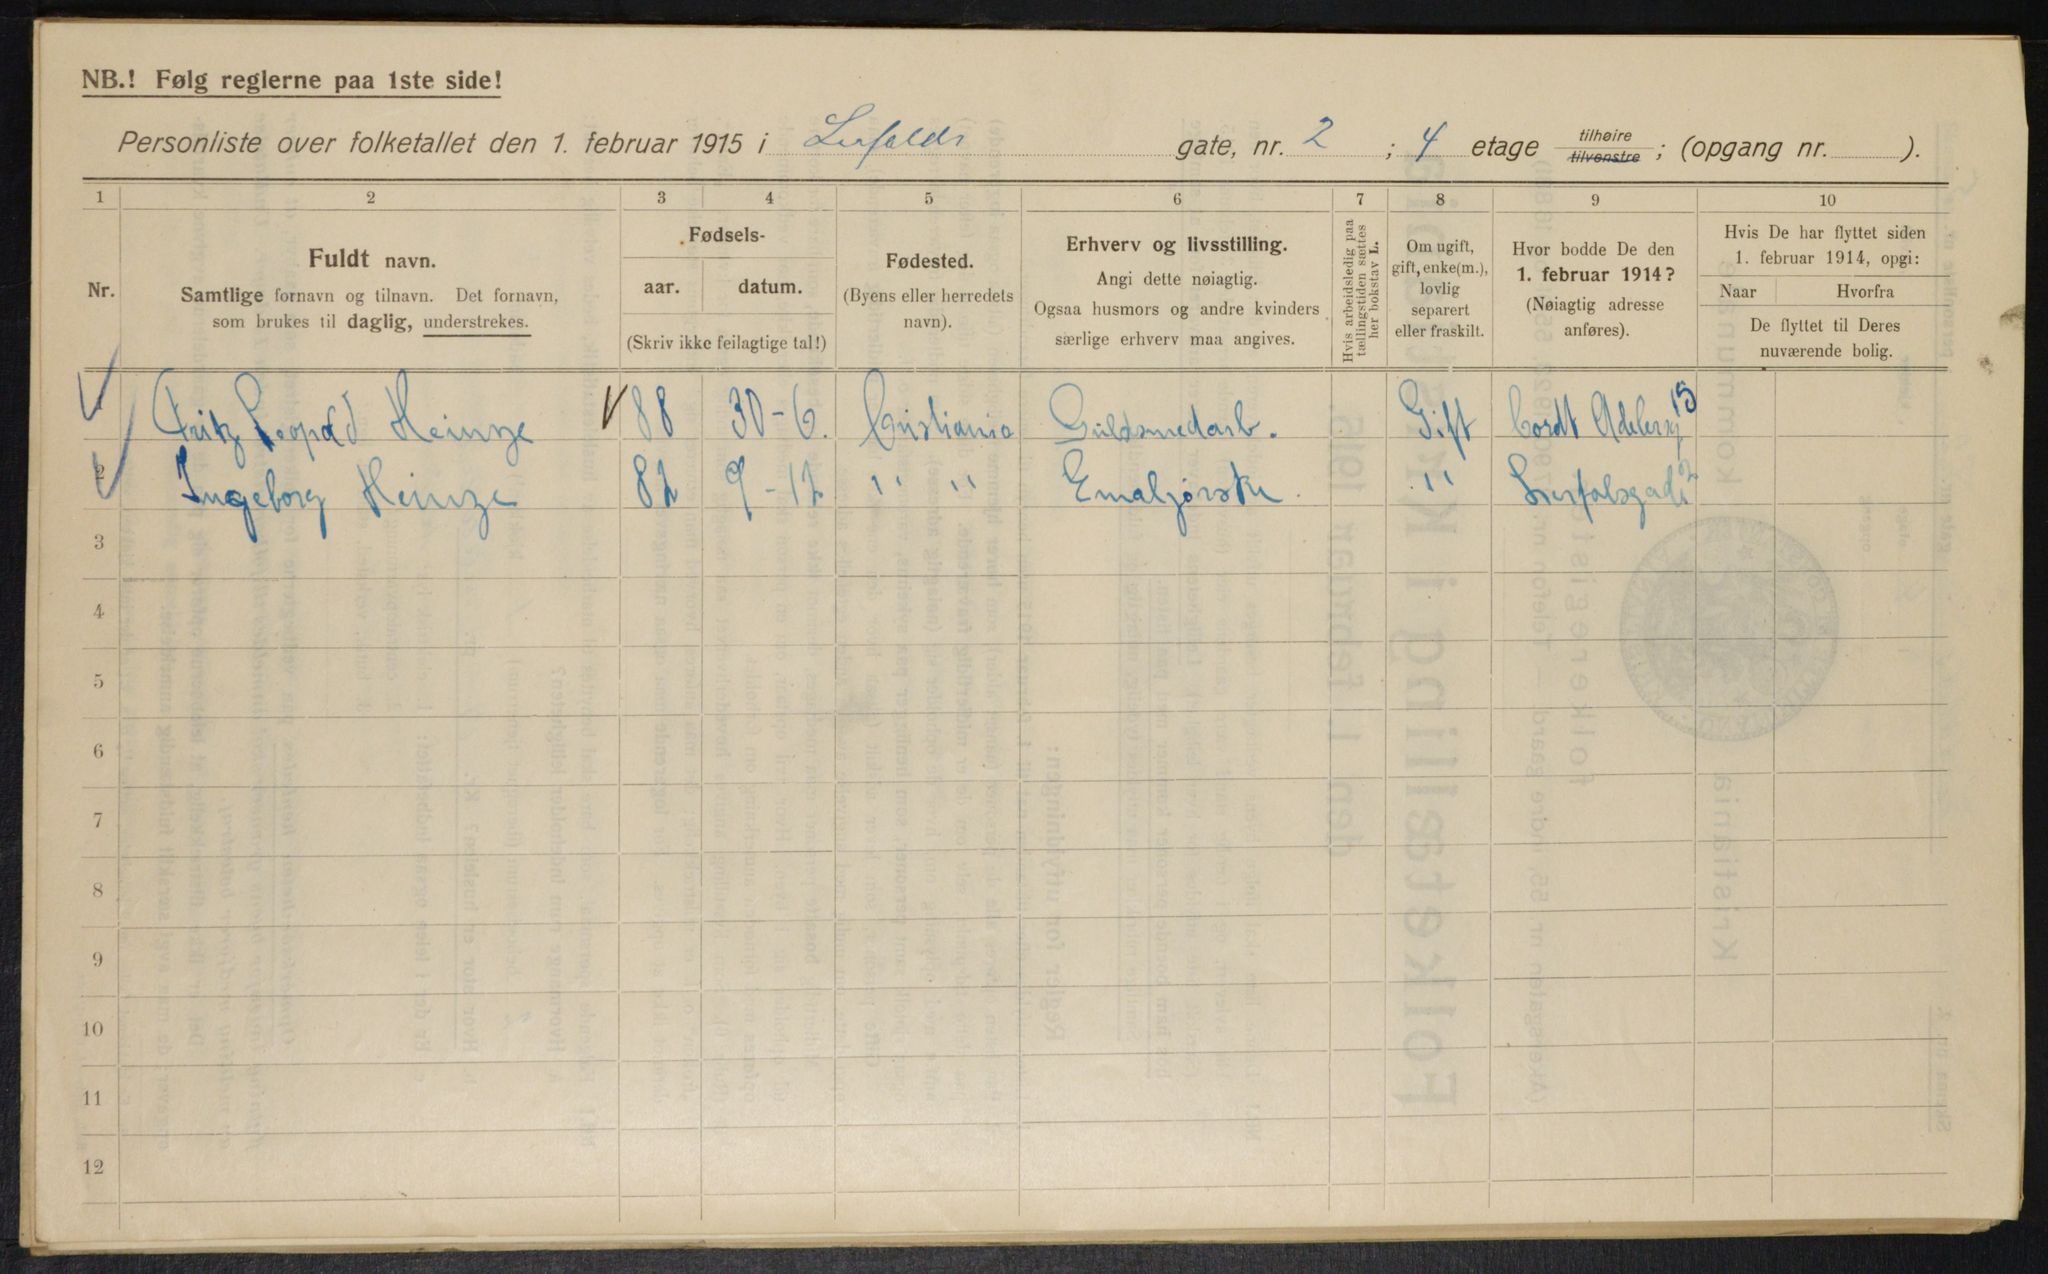 NB.! Følg reglerne paa 1ste side!
Personliste over folketallet den 1. februar 1915 i Lerfalds gate, nr. 2 ; 4 etage tilhøire tilvenstre ; (opgang nr. ).
1 2 3 4 5 6 7 8 9 10
Nr.
Fuldt navn.
Samtlige fornavn og tilnavn. Det fornavn,
som brukes til daglig, understrekes.
Fødsels-
aar. datum.
(Skriv ikke feilagtige tal!)
Fødested.
(Byens eller herredets
navn).
Erhverv og livsstilling.
Angi dette nøiagtig.
Ogsaa husmors og andre kvinders
særlige erhverv maa angives.
Hvis arbeidsledig paa
tællingstiden sættes
her bokstav L.
Om ugift,
gift, enke(m.),
lovlig
separert
eller fraskilt.
Hvor bodde De den
1. februar 1914?
(Nøiagtig adresse
anføres).
Hvis De har flyttet siden
1. februar 1914, opgi:
Naar Hvorfra
De flyttet til Deres
nuværende bolig.
Fritz Leopold Heinze 88 30-6. Cristiania Guldsmedarb. Gift Cordt Adelersg 15
2 Ingeborg Heinze 82 9-12 " " Emaljørske " 2
3
4
5
6
7
8
9
10
11
12